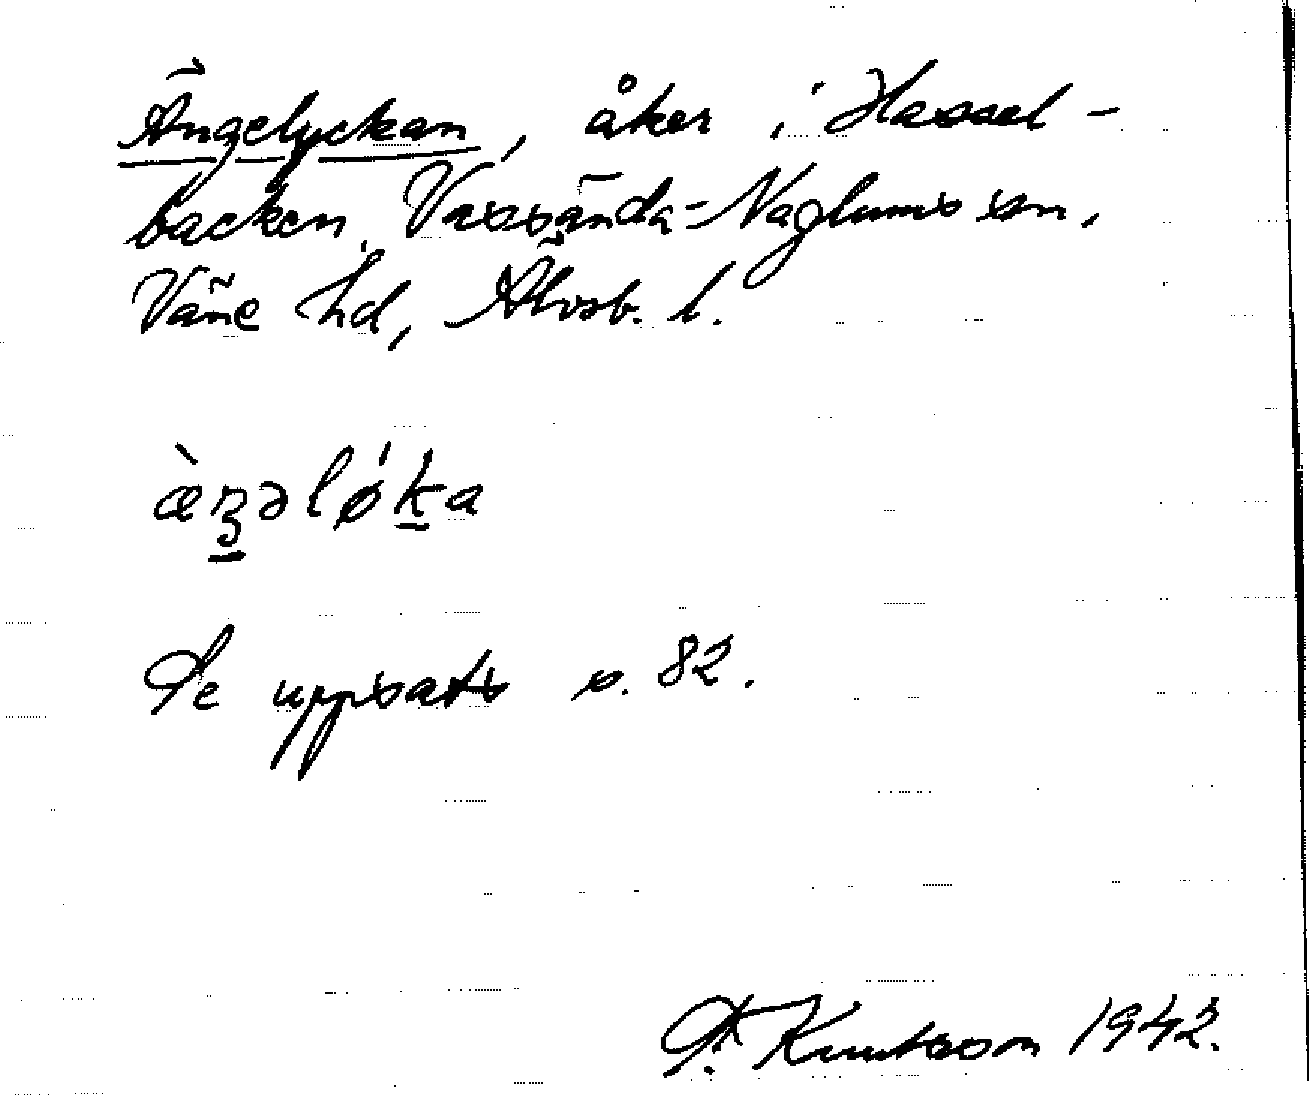 Ängelyckan, åker i Hassel-
backen, Vassända-Naglums sn,
Väne hd, Älvsb. l.
æ̀ŋ̱əlǿḵa
Se uppsats s. 82.
Knutsson 1942.